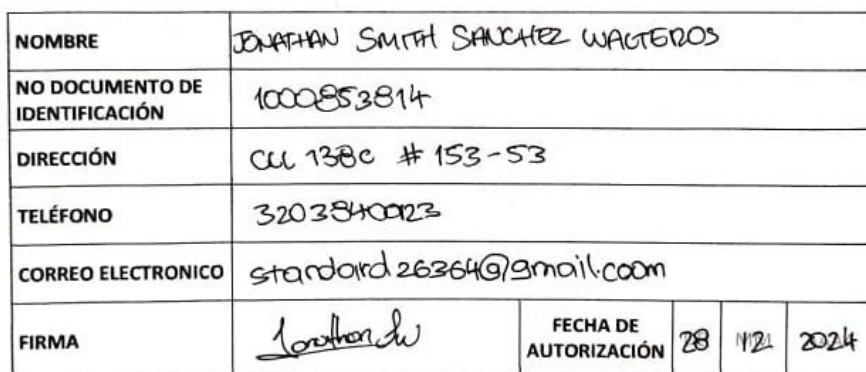 NOMBRE JONATHAN SMITH SANCHEZ WALTEROS
NO DOCUMENTO DE
IDENTIFICACIÓN 1000853814
DIRECCIÓN CLL 138C # 153-53
TELÉFONO
CORREO ELECTRONICO standard26364@gmail.coom
FIRMA FECHA DE
AUTORIZACIÓN 28 12 2024